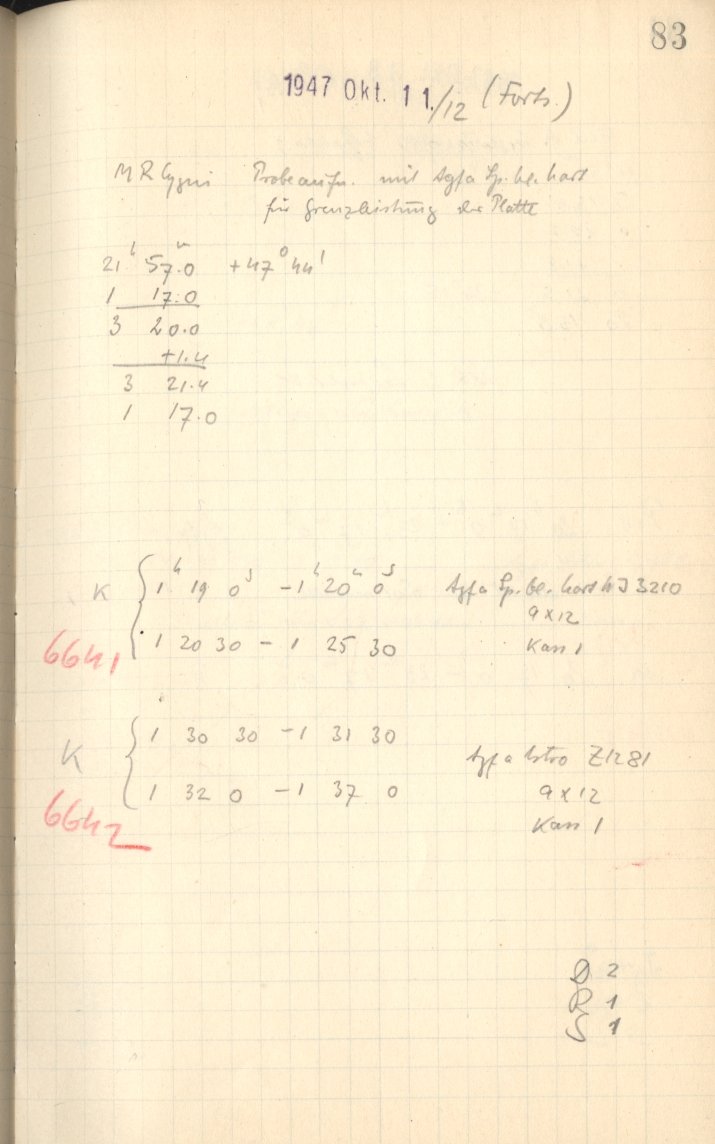 83
1947 Okt. 11./12 (Forts.)
MR Cygni Probeaufn. mit Agfa Sp. bl. hart
für Grenzleistung der Platte
21ʰ 57.0ᵐ +47° 44'
1 17.0
3 20.0
+1.4
3 21.4
1 17.0
K { 1ʰ 19 0ˢ - 1ʰ 20ᵐ 0ˢ Agfa Sp. bl. hart 3210
9x12
6641 1 20 30 - 1 25 30 Kass 1
K { 1 30 30 - 1 31 30
Agfa Astro Z1281
1 32 0 - 1 37 0 9x12
6642 Kass 1
D 2
R 1
S 1